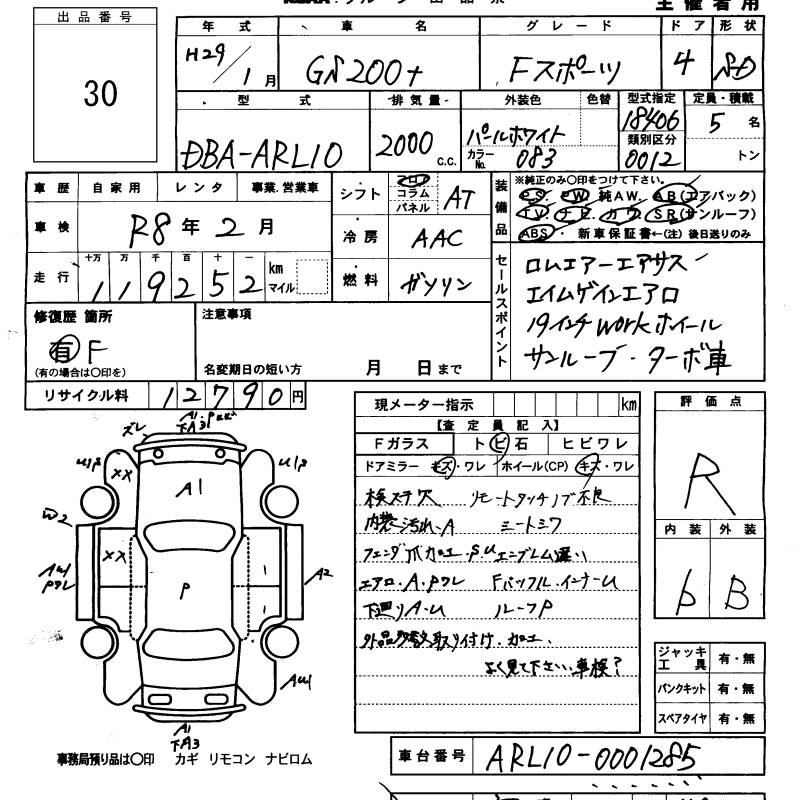 出品番号
30
年式 車名 グレード ドア 形状
H29/1月 GS200t Fスポーツ 4 SD
型式 排気量 外装色 色替 型式指定 定員・積載
DBA-ARL10 2000 c.c. パールホワイト カラーNo. 083 18406 類別区分 0012 5名 トン
車歴 自家用 レンタ 事業.営業車
車検 R8年2月
走行 十万 万 千 百 十 一 km マイル
119252
シフト フロア コラム パネル AT
冷房 AAC
燃料 ガソリン
装備品 ※純正のみ○印をつけて下さい。
PS. PW. 純AW. AB(エアバック)
TV. ナビ. カワ. SR(サンルーフ)
ABS. 新車保証書←(注) 後日送りのみ
セールスポイント
ロムエアーエアサス
エイムゲインエアロ
19インチworkホイール
サンルーブ・ターボ車
修復歴 箇所
有 F
(有の場合は○印を)
注意事項
名変期日の短い方 月 日まで
リサイクル料 12790円
現メーター指示 km
【査定員記入】
Fガラス トビ石 ヒビワレ
ドアミラー キズ・ワレ ホイール(CP) キズ・ワレ
検ステ欠 リモートタッチノブ不良
内装汚れ・A シートシワ
エアロ・A.Pワレ
下廻りA・U ルーフP
取り付け.加工.
よく見て下さい.車検?
評価点
R
内装 外装
b B
ジャッキ工具 有・無
パンクキット 有・無
スペアタイヤ 有・無
ズレ
A1
下A3
U1P
U1P
XX
A1
W2
XX
AW1
Pワレ
P
A2
AW1
A1
下A3
事務局預り品は○印 カギ リモコン ナビロム
車台番号 ARL10-0001285